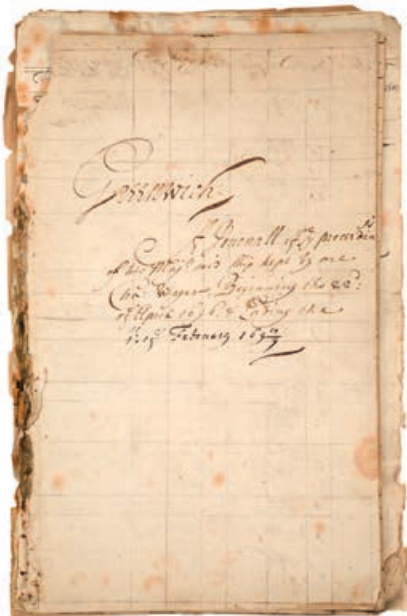 Greenwich
A Journall of ye proceedings
of his Majties ship kept by me
Cha: Wager Beginning the 22:
of Aprill 1696 & Ending the
February 169